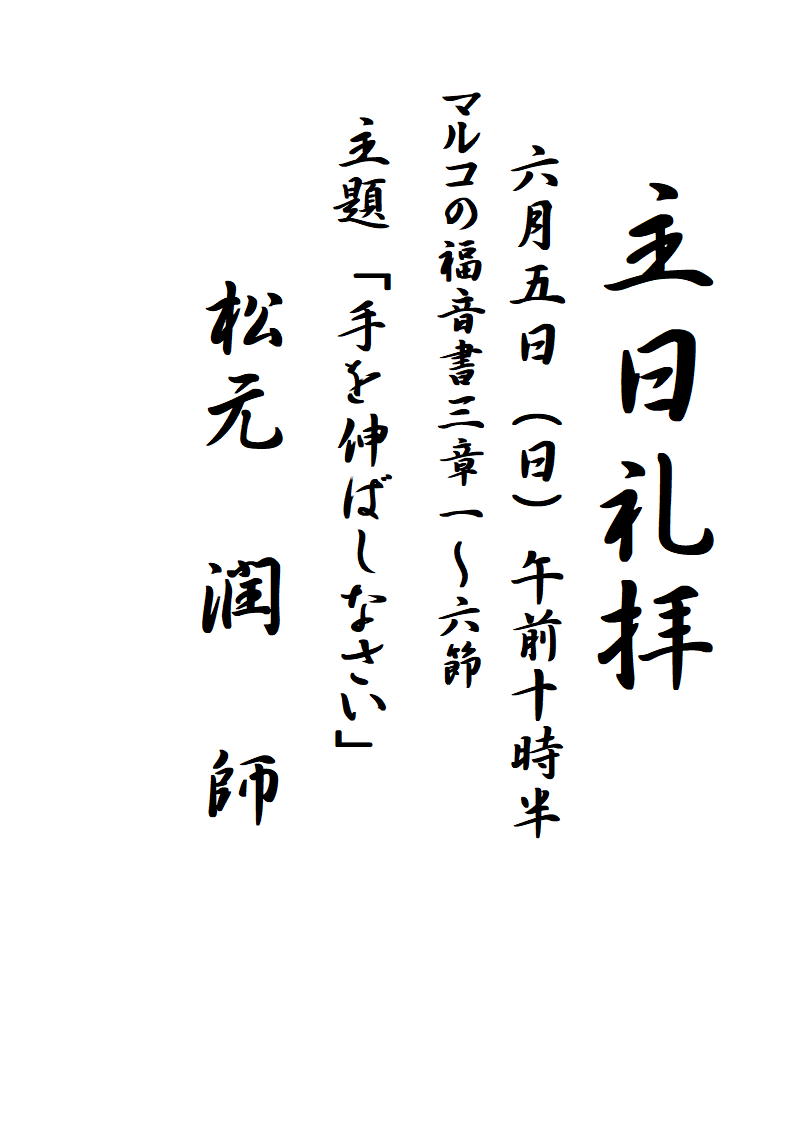 主日礼拝
六月五日（日）午前十時半
マルコの福音書三章一～六節
主題「手を伸ばしなさい」
松元　潤　師